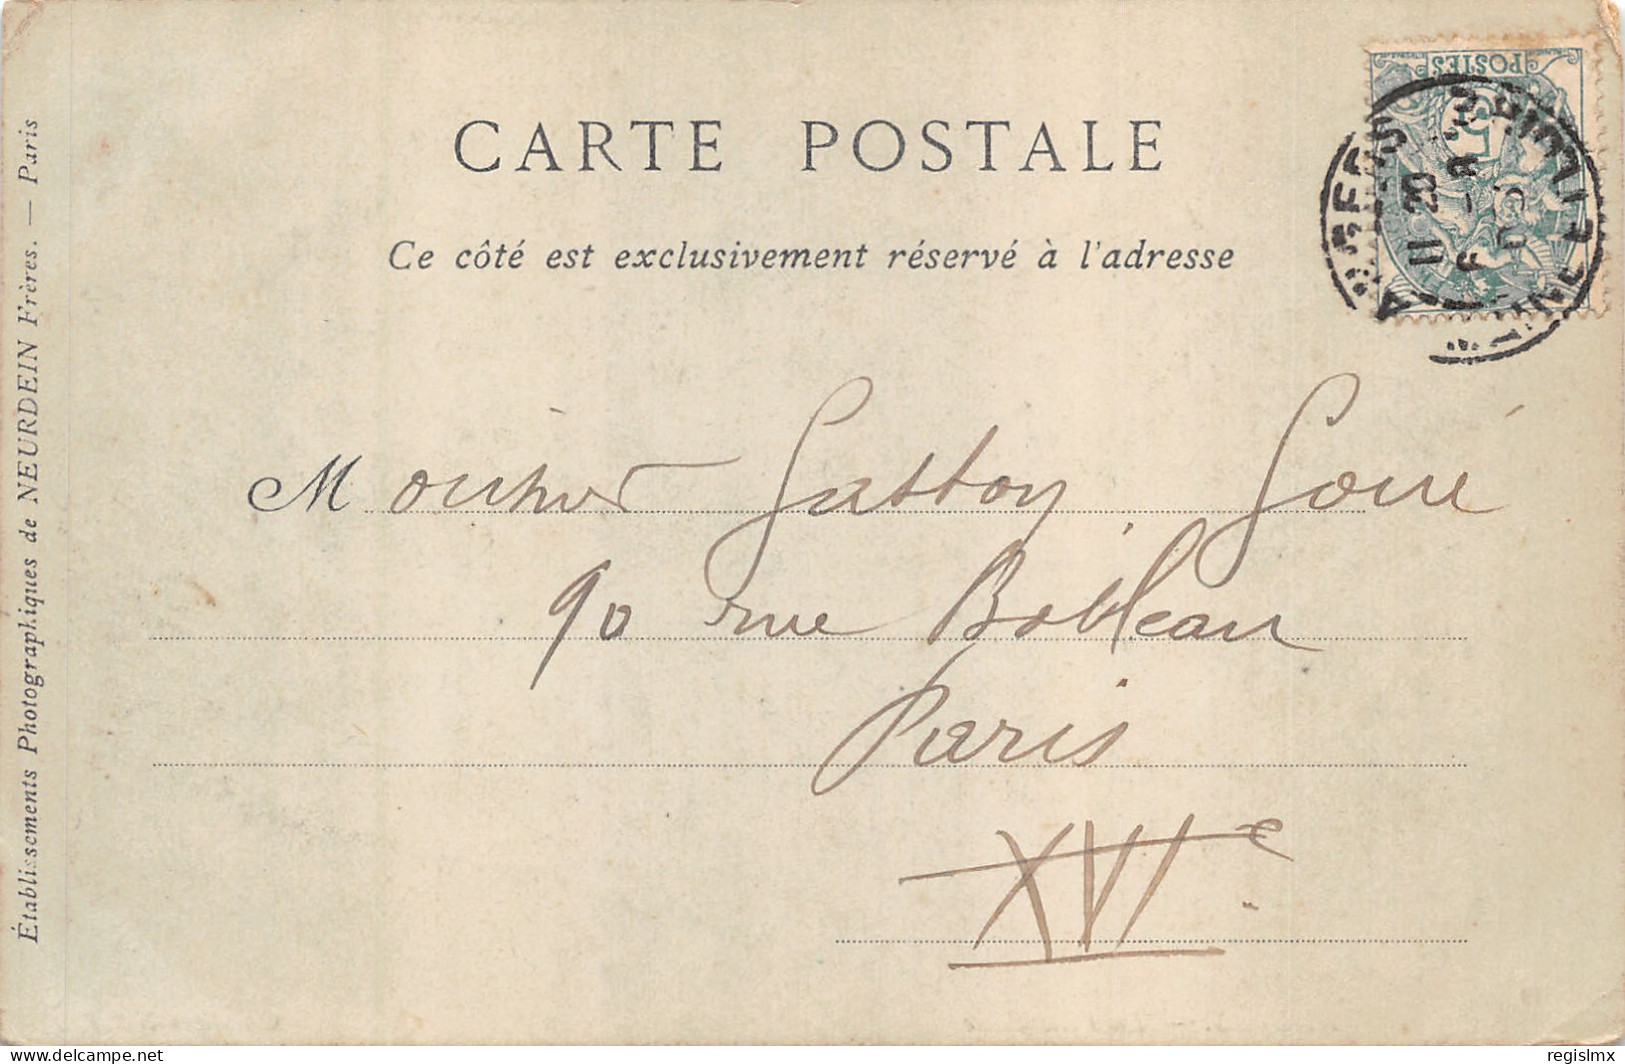 CARTE POSTALE
Ce côté est exclusivement réservé à l'adresse
Établissements Photographiques de NEURDEIN Frères. — Paris
POSTES
5
Monsieur Gaston
90 rue Bobleau
Paris
XVIe
delcampe.net
regislmx